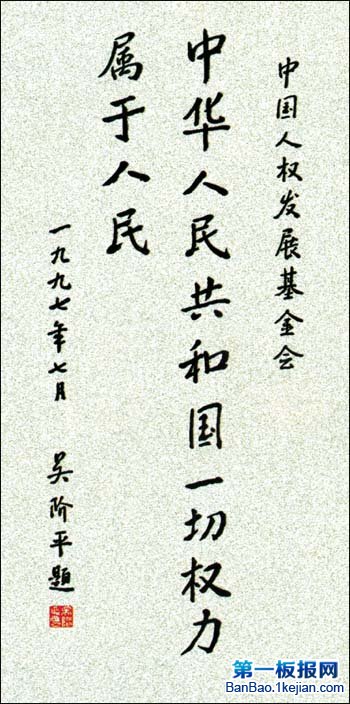 中国人权发展基金会
中华人民共和国一切权力
属于人民
一九九七年七月 吴阶平题
第一板报网
BanBao.1kejian.com